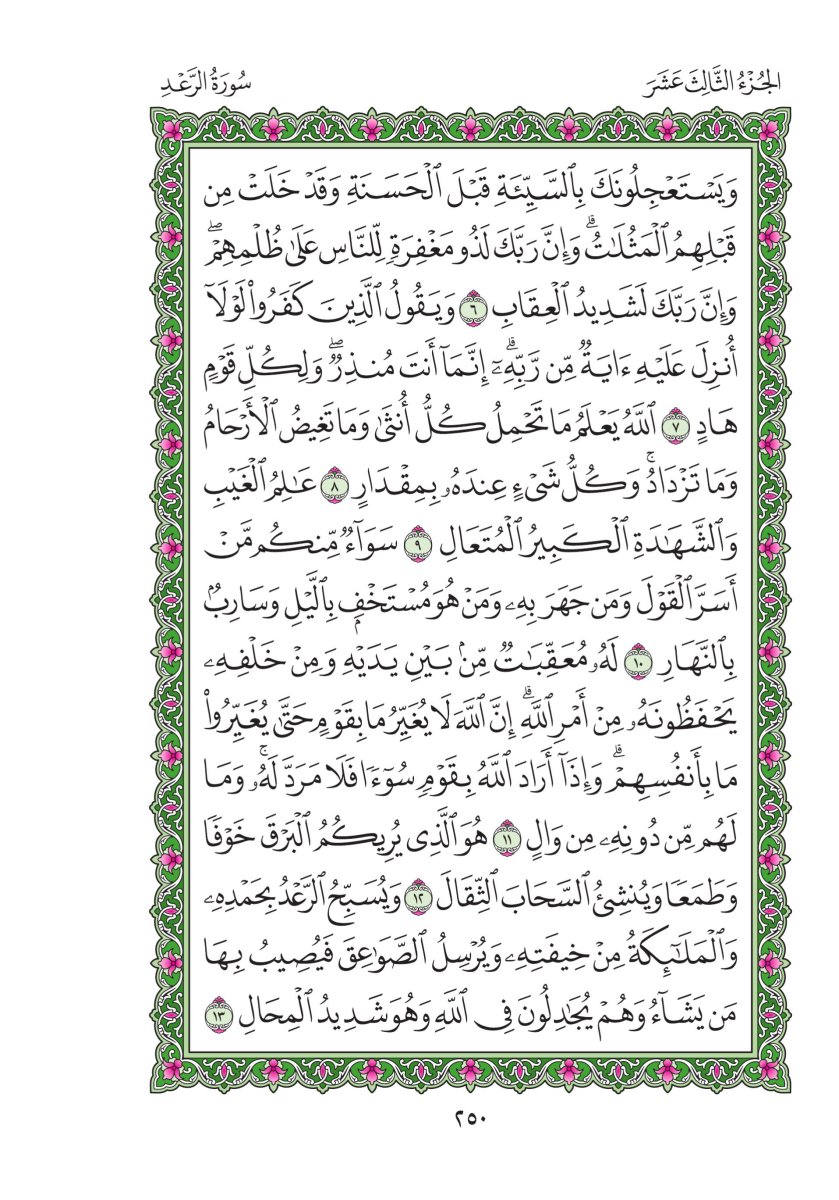 الجُزْءُ الثَّالِثَ عَشَرَ
سُورَةُ الرَّعْدِ
وَيَسْتَعْجِلُونَكَ بِٱلسَّيِّئَةِ قَبْلَ ٱلْحَسَنَةِ وَقَدْ خَلَتْ مِن
قَبْلِهِمُ ٱلْمَثُلَـٰتُۗ وَإِنَّ رَبَّكَ لَذُو مَغْفِرَةٍ لِّلنَّاسِ عَلَىٰ ظُلْمِهِمْۖ
وَإِنَّ رَبَّكَ لَشَدِيدُ ٱلْعِقَابِ ٦ وَيَقُولُ ٱلَّذِينَ كَفَرُوا۟ لَوْلَآ
أُنزِلَ عَلَيْهِ ءَايَةٌ مِّن رَّبِّهِۦٓۗ إِنَّمَآ أَنتَ مُنذِرٌۖ وَلِكُلِّ قَوْمٍ
هَادٍ ٧ ٱللَّهُ يَعْلَمُ مَا تَحْمِلُ كُلُّ أُنثَىٰ وَمَا تَغِيضُ ٱلْأَرْحَامُ
وَمَا تَزْدَادُۚ وَكُلُّ شَىْءٍ عِندَهُۥ بِمِقْدَارٍ ٨ عَـٰلِمُ ٱلْغَيْبِ
وَٱلشَّهَـٰدَةِ ٱلْكَبِيرُ ٱلْمُتَعَالِ ٩ سَوَآءٌ مِّنكُم مَّنْ
أَسَرَّ ٱلْقَوْلَ وَمَن جَهَرَ بِهِۦ وَمَنْ هُوَ مُسْتَخْفٍۭ بِٱلَّيْلِ وَسَارِبٌۢ
بِٱلنَّهَارِ ١٠ لَهُۥ مُعَقِّبَـٰتٌ مِّنۢ بَيْنِ يَدَيْهِ وَمِنْ خَلْفِهِۦ
يَحْفَظُونَهُۥ مِنْ أَمْرِ ٱللَّهِۗ إِنَّ ٱللَّهَ لَا يُغَيِّرُ مَا بِقَوْمٍ حَتَّىٰ يُغَيِّرُوا۟
مَا بِأَنفُسِهِمْۗ وَإِذَآ أَرَادَ ٱللَّهُ بِقَوْمٍ سُوٓءًا فَلَا مَرَدَّ لَهُۥۚ وَمَا
لَهُم مِّن دُونِهِۦ مِن وَالٍ ١١ هُوَ ٱلَّذِى يُرِيكُمُ ٱلْبَرْقَ خَوْفًا
وَطَمَعًا وَيُنشِئُ ٱلسَّحَابَ ٱلثِّقَالَ ١٢ وَيُسَبِّحُ ٱلرَّعْدُ بِحَمْدِهِۦ
وَٱلْمَلَـٰٓئِكَةُ مِنْ خِيفَتِهِۦ وَيُرْسِلُ ٱلصَّوَٰعِقَ فَيُصِيبُ بِهَا
مَن يَشَآءُ وَهُمْ يُجَـٰدِلُونَ فِى ٱللَّهِ وَهُوَ شَدِيدُ ٱلْمِحَالِ ١٣
٢٥٠